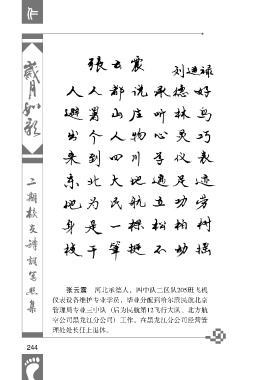 作
岁月如歌
二期校友诗词笔照集
张云震
刘进禄
人人都说承德好
避暑山庄听林鸟
出个人物心灵巧
来到四川学仪表
东北大地遍足迹
他为民航立功劳
身是一棵松柏树
枝干笔挺不动摇
张云震 河北承德人，四中队二区队205班飞机
仪表设备维护专业学员，毕业分配到哈尔滨民航北京
管理局专业三中队（后为民航第12飞行大队、北方航
空公司黑龙江分公司）工作。在黑龙江分公司经营管
理处处长任上退休。
244